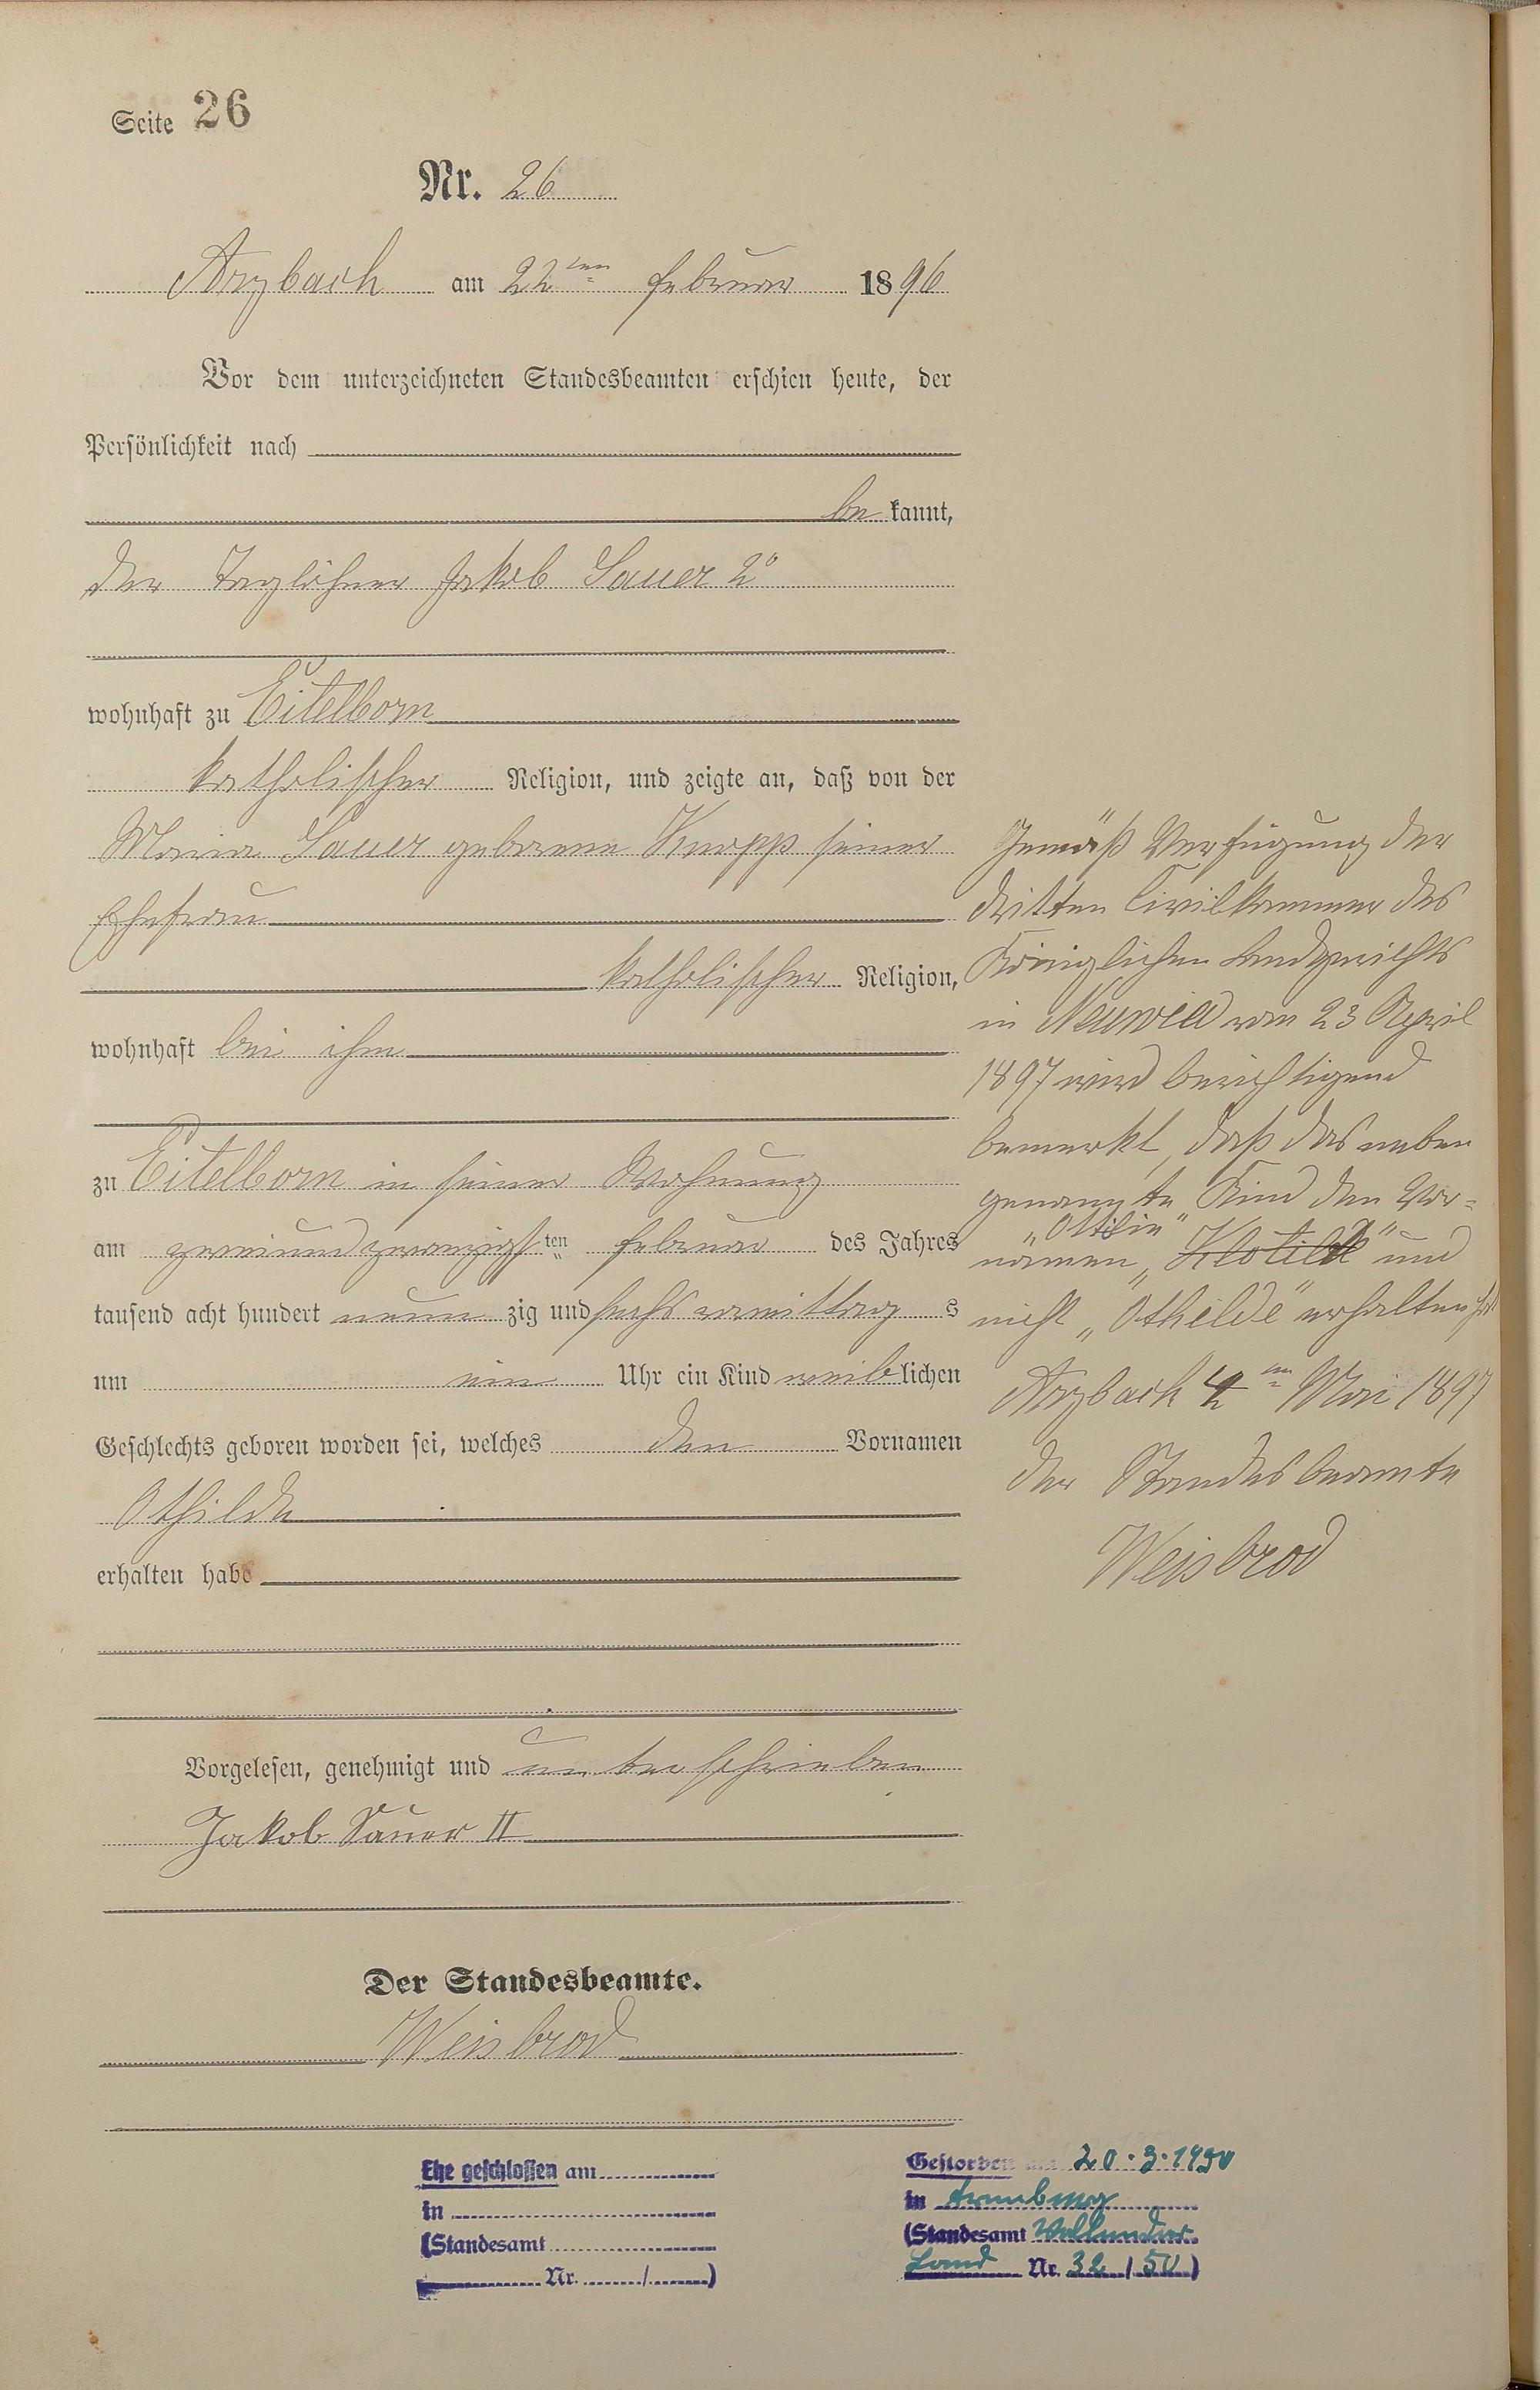 Seite 26
Nr. 26
Arzbach am 22ten Februar 1896
Vor dem unterzeichneten Standesbeamten erschien heute, der
Persönlichkeit nach
be kannt,
der Taglöhner Jakob Sauer 2º
wohnhaft zu Eitelborn
katholischer Religion, und zeigte an, daß von der
Maria Sauer geborene Knopp seiner
Ehefrau
katholischer Religion,
wohnhaft bei ihm
zu Eitelborn in seiner Wohnung
am zweiundzwanzigsten Februar des Jahres
tausend acht hundert neun zig und sechs vormittag s
um ein Uhr ein Kind weiblichen
Geschlechts geboren worden sei, welches den Vornamen
Othilde
erhalten habe
Vorgelesen, genehmigt und unterschrieben
Jakob Sauer II
Der Standesbeamte.
Weisbrod
Gemäß Verfügung der
dritten Civilkammer des
Königlichen Landgerichts
in Neuwied vom 23 April
1897 wird berichtigend
bemerkt, daß das neben
genannte Kind den Vor-
„Ottilie"
namen „Klotilde" und
nicht „Othilde" erhalten hat
Arzbach 4ten Mai 1897
Der Standesbeamte
Weisbrod
Ehe geschlossen am
in
(Standesamt
Nr. / )
Gestorben am 20.3.1950
in Arenberg
(Standesamt Vallendar
Land Nr. 32 / 50)